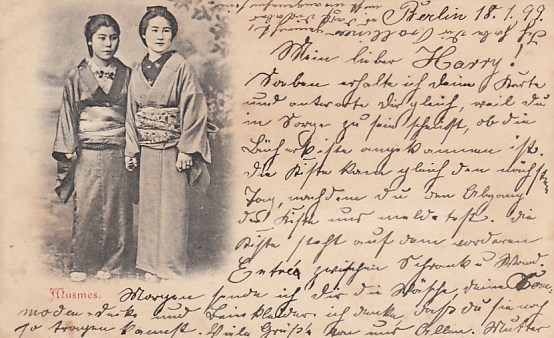 Berlin 18.1.99.
Mein lieber Harry!
Soeben erhalte ich deine Karte
und antworte Dir gleich, weil du
in Sorge zu sein scheinst, ob die
Bücherkiste angekommen ist.
die Kiste kam gleich den nächsten
Tag, nachdem du den Abgang
der Kiste uns meldetest. die
Kiste steht auf dem vorderen
Entrée zwischen Schrank u Wand.
Musmes.
Morgen sende ich Dir die Wäsche, deine
und Beinkleider. ich denke, daß du sie noch
so tragen kannst. Viele Grüße von uns Allen. Mutter